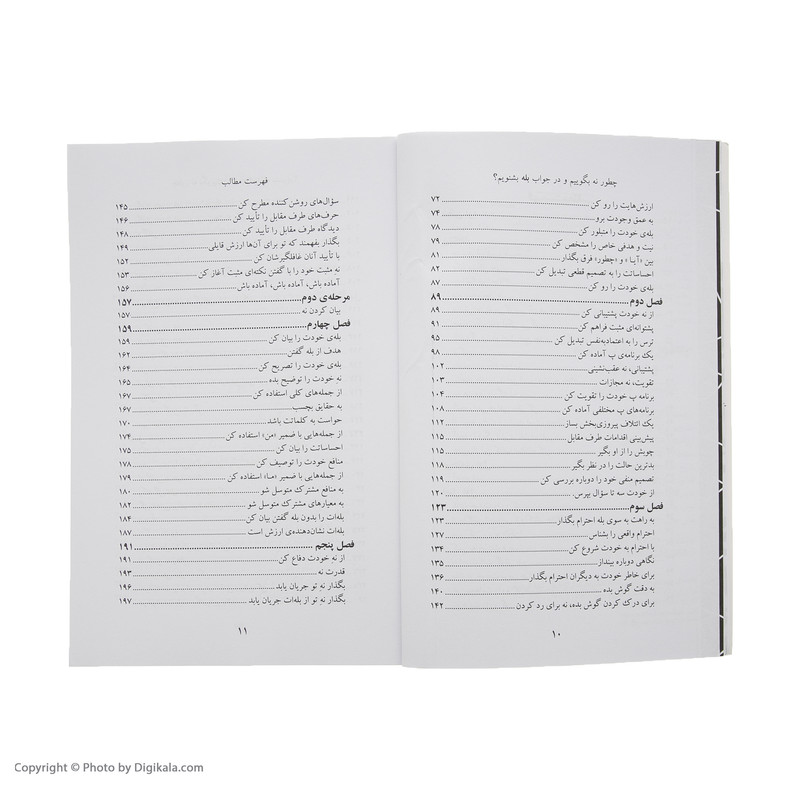 چطور نه بگوییم و در جواب بله بشنویم؟
ارزش‌هایت را رو کن ۷۲
به عمق وجودت برو ۷۴
بله‌ی خودت را متبلور کن ۷۸
نیت و هدفی خاص را مشخص کن ۷۹
بین «آیا» و «چطور» فرق بگذار ۸۱
احساساتت را به تصمیم قطعی تبدیل کن ۸۲
بله‌ی خودت را رو کن ۸۷
فصل دوم ۸۹
از نه خودت پشتیبانی کن ۸۹
پشتوانه‌ای مثبت فراهم کن ۹۱
ترس را به اعتمادبه‌نفس تبدیل کن ۹۵
یک برنامه‌ی پ آماده کن ۹۸
پشتیبانی، نه عقب‌نشینی ۱۰۲
تقویت، نه مجازات ۱۰۳
برنامه پ خودت را تقویت کن ۱۰۴
برنامه‌های پ مختلفی آماده کن ۱۰۸
یک ائتلاف پیروزی‌بخش بساز ۱۱۲
پیش‌بینی اقدامات طرف مقابل ۱۱۵
چوبش را از او بگیر ۱۱۵
بدترین حالت را در نظر بگیر ۱۱۸
تصمیم منفی خود را دوباره بررسی کن ۱۱۹
از خودت سه تا سؤال بپرس ۱۲۰
فصل سوم ۱۲۳
به راهت به سوی بله احترام بگذار ۱۲۳
احترام واقعی را بشناس ۱۲۷
با احترام به خودت شروع کن ۱۳۴
نگاهی دوباره بینداز ۱۳۵
برای خاطر خودت به دیگران احترام بگذار ۱۳۶
به دقت گوش بده ۱۴۰
برای درک کردن گوش بده، نه برای رد کردن ۱۴۲
۱۰
فهرست مطالب
سؤال‌های روشن‌کننده مطرح کن ۱۴۵
حرف‌های طرف مقابل را تأیید کن ۱۴۶
دیدگاه طرف مقابل را تأیید کن ۱۴۸
بگذار بفهمند که تو برای آن‌ها ارزش قایلی ۱۴۹
با تأیید آنان غافلگیرشان کن ۱۵۲
نه مثبت خود را با گفتن نکته‌ای مثبت آغاز کن ۱۵۳
آماده باش، آماده باش، آماده باش ۱۵۶
مرحله‌ی دوم ۱۵۷
بیان کردن نه ۱۵۷
فصل چهارم ۱۵۹
بله‌ی خودت را بیان کن ۱۵۹
هدف از بله گفتن ۱۶۲
بله‌ی خودت را تصریح کن ۱۶۴
نه خودت را توضیح بده ۱۶۵
از جمله‌های کلی استفاده کن ۱۶۷
به حقایق بچسب ۱۶۷
حواست به کلماتت باشد ۱۷۰
از جمله‌هایی با ضمیر «من» استفاده کن ۱۷۴
احساساتت را بیان کن ۱۷۵
منافع خودت را توصیف کن ۱۷۸
از جمله‌هایی با ضمیر «ما» استفاده کن ۱۷۹
به منافع مشترک متوسل شو ۱۸۰
به معیارهای مشترک متوسل شو ۱۸۲
بله‌ات را بدون بله گفتن بیان کن ۱۸۴
بله‌ات نشان‌دهنده‌ی ارزش است ۱۸۷
فصل پنجم ۱۹۱
از نه خودت دفاع کن ۱۹۱
قدرت نه ۱۹۳
بگذار نهِ تو جریان یابد ۱۹۶
بگذار نهِ تو از بله‌ات جریان یابد ۱۹۷
۱۱
Copyright © Photo by Digikala.com